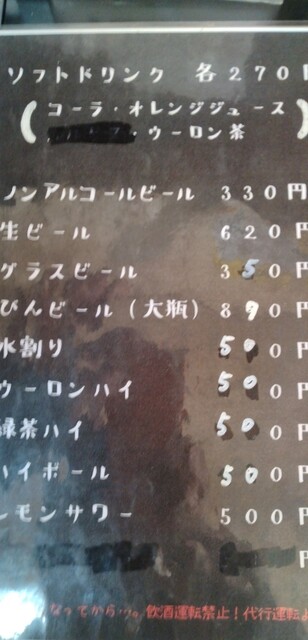 ソフトドリンク 各270円
(コーラ・オレンジジュース
・ウーロン茶)
ノンアルコールビール 330円
生ビール 620円
グラスビール 350円
びんビール(大瓶) 890円
水割り 500円
ウーロンハイ 500円
緑茶ハイ 500円
ハイボール 500円
レモンサワー 500円
円
なってから…。飲酒運転禁止!代行運転